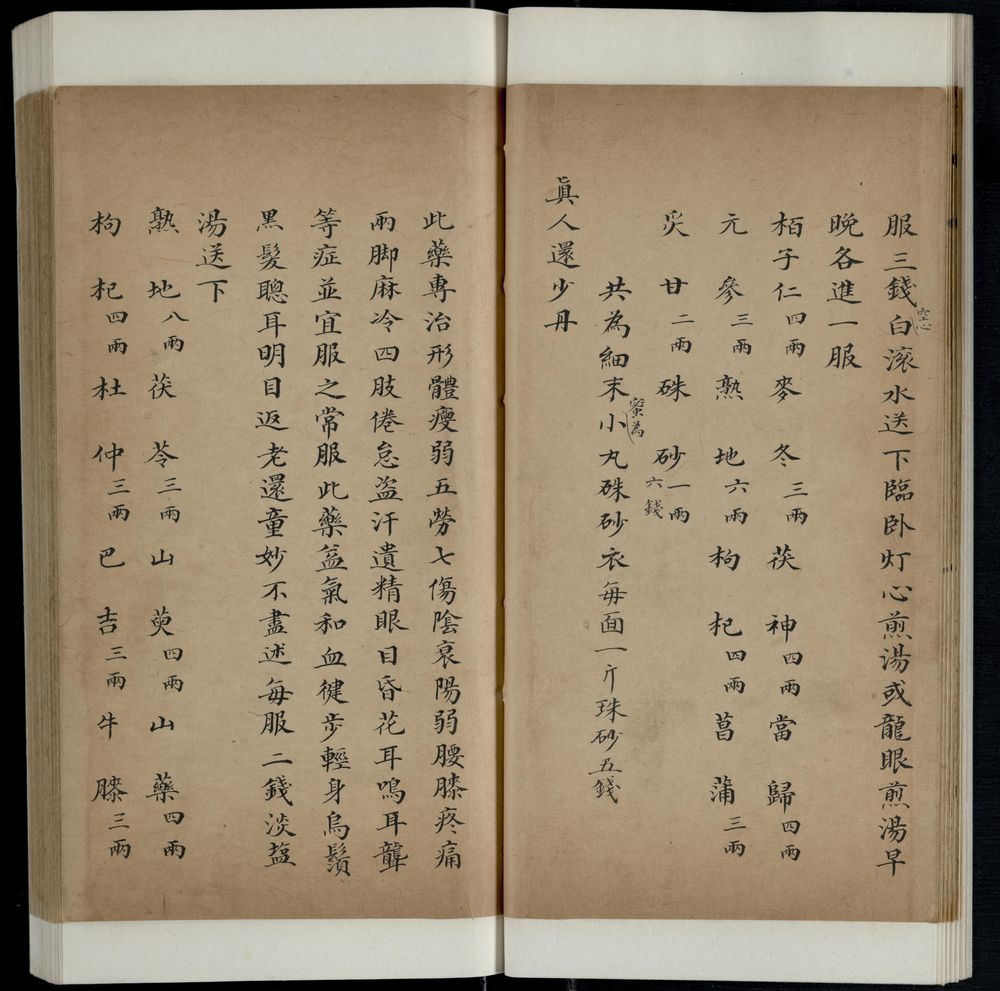 服三錢空心白滚水送下臨卧灯心煎湯或龍眼煎湯早
晚各進一服
栢子仁四兩麥冬三兩茯神四兩當歸四兩
元參三兩熟地六兩枸杞四兩菖蒲三兩
炙甘二兩硃砂一兩六錢
共為細末蜜為小丸硃砂衣每面一斤珠砂五錢
眞人還少丹
此藥專治形體瘦弱五勞七傷陰衰陽弱腰膝疼痛
兩脚麻冷四肢倦怠盜汗遺精眼目昏花耳鳴耳聾
等症並宜服之常服此藥益氣和血健步輕身烏鬚
黑髮聰耳明目返老還童妙不盡述每服二錢淡盐
湯送下
熟地八兩茯苓三兩山萸四兩山藥四兩
枸杞四兩杜仲三兩巴吉三兩牛膝三兩